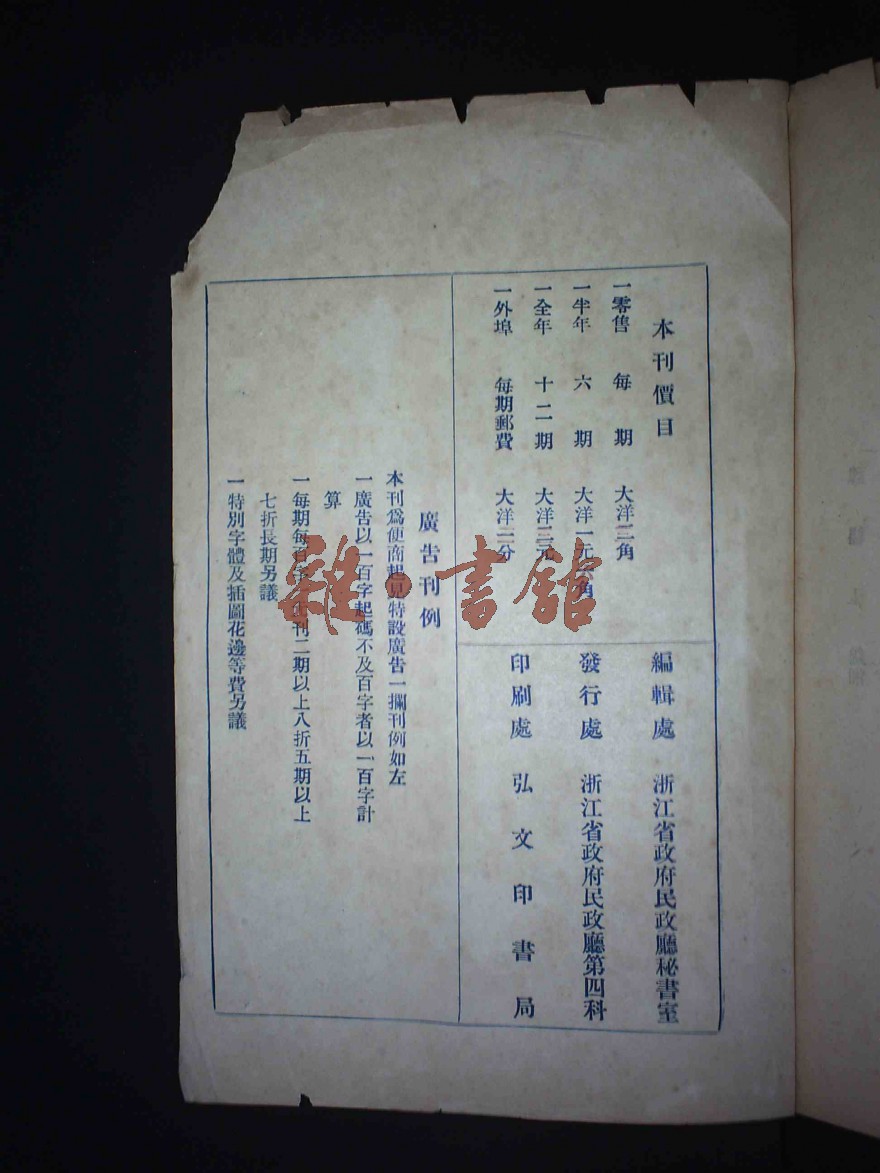 本刊價目
一零售 每期 大洋三角
一半年 六期 大洋一元 角
一全年 十二期 大洋三元
一外埠 每期郵費 大洋二分
編輯處 浙江省政府民政廳秘書室
發行處 浙江省政府民政廳第四科
印刷處 弘文印書局
廣告刊例
本刊爲便商起見特設廣告一攔刊例如左
一廣告以一百字起碼不及百字者以一百字計
算
一每期每百字 刊二期以上八折五期以上
七折長期另議
一特別字體及插圖花邊等費另議
雜·書舘